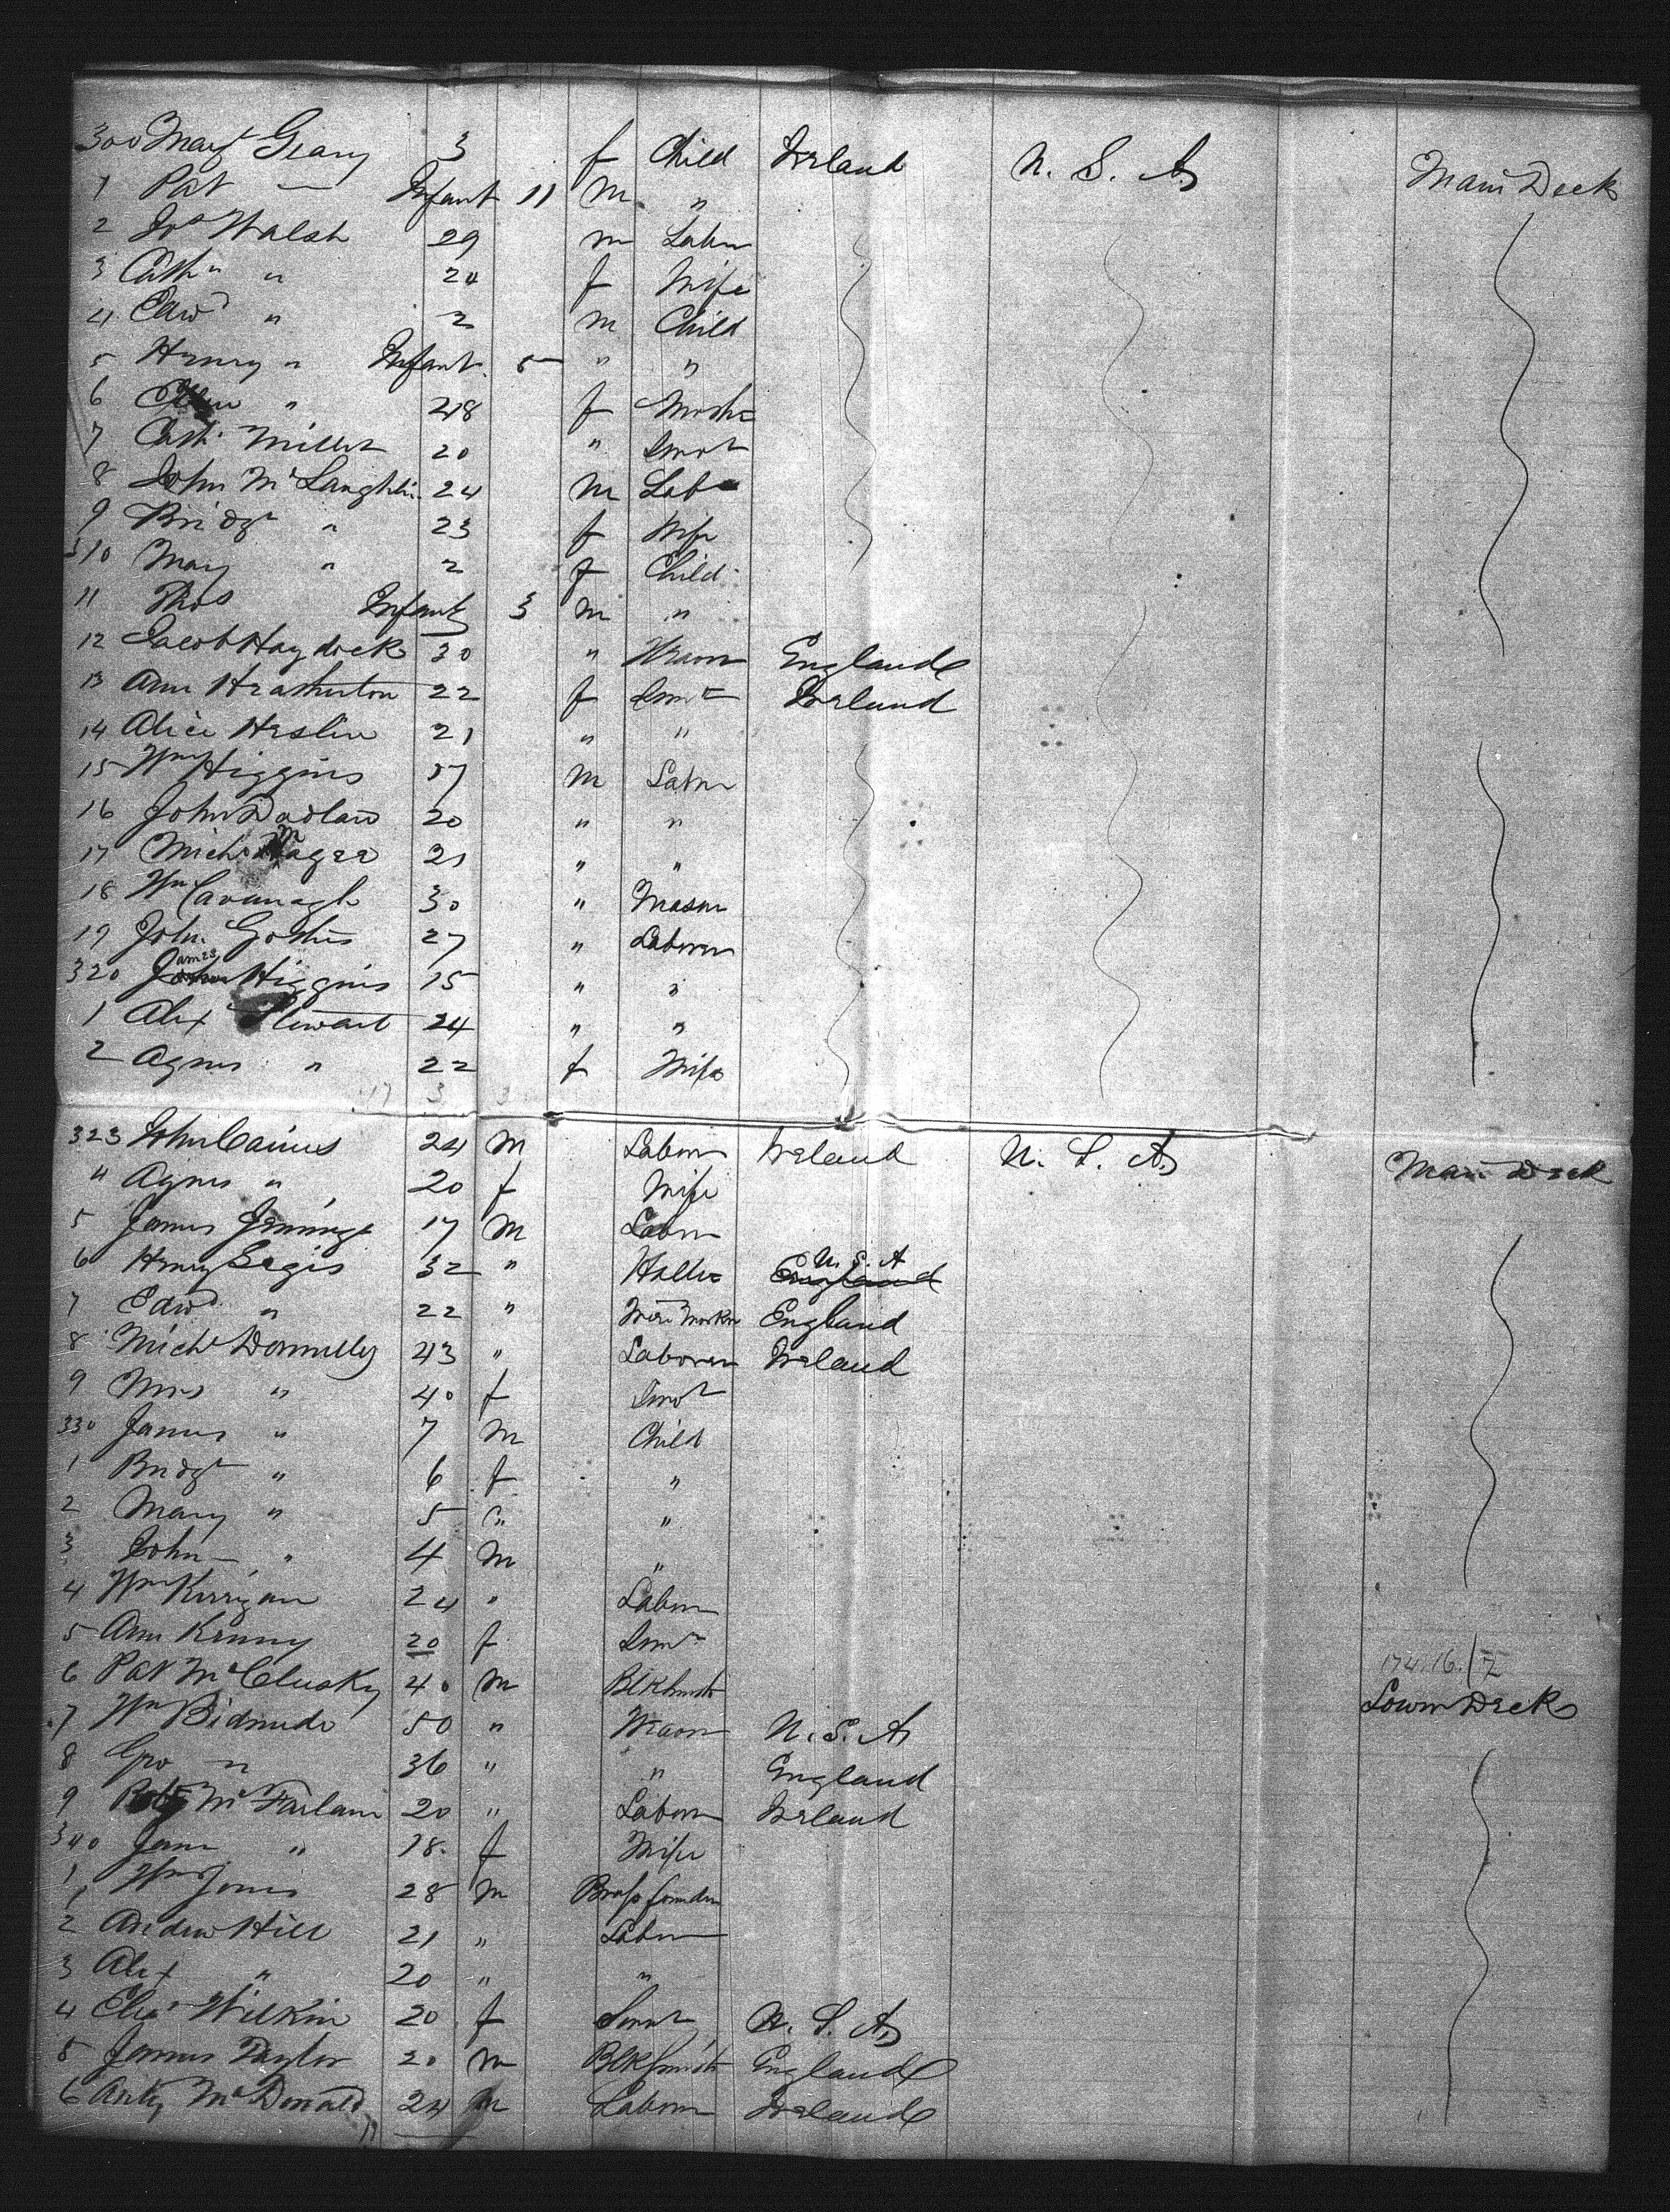 300 Margt Geary 3 f Child Ireland U. S. A Main Deck
1 Pat — Infant 11 m "
2 Jos Walsh 29 m Labr
3 Cathn " 24 f Wife
4 Edwd " 2 m Child
5 Henry " Infant 5 " "
6 " 48 f Mothr
7 Cath. Millet 20 " Srvt
8 John McLaughlin 24 m Labr
9 Bridgt " 23 f Wife
310 Mary " 2 f Child
11 Thos Infant 3 m "
12 Jacob Haydock 30 " Weavr England
13 Ann Heatherton 22 f Servt Ireland
14 Alice Heslin 21 " "
15 Wm Higgins 57 m Labr
16 John Dodlan 20 " "
17 Michl Magee 21 " "
18 Wm Cavanagh 30 " Mason
19 John 27 " Laborer
320 James Higgins 15 " "
1 Alex Stewart 24 " "
2 Agnes " 22 f Wife
17 3 3
323 John Cairns 24 m Labor Ireland U. S. A Main Deck
4 Agnes " 20 f Wife
5 James Jennings 17 m Labr
6 Henry Segis 32 " Hatter England U. S. A
7 Edwd " 22 " Wire Workr England
8 Michl Donnelly 43 " Laborer Ireland
9 Mrs " 40 f Srvt
330 James " 7 m Child
1 Bridgt " 6 f "
2 Mary " 5 " "
3 John " 4 m "
4 Wm Kerrigan 24 " Labor
5 Ann Kenny 20 f Srvt
6 Pat McClusky 40 m Blksmith 174.16.17 Lower Deck
7 Wm 50 " Weavr U. S. A
8 Geo " 36 " " England
9 Robt McFarlane 20 " Labor Ireland
340 Jane " 18 f Wife
1 Wm Jones 28 m Brass founder
2 Andrew Hill 21 " Labor
3 Alex " 20 " "
4 Eliza Wilkin 20 f Servt U. S. A
5 James Taylor 20 m Blksmith England
6 Anty McDonald 24 m Labor Ireland